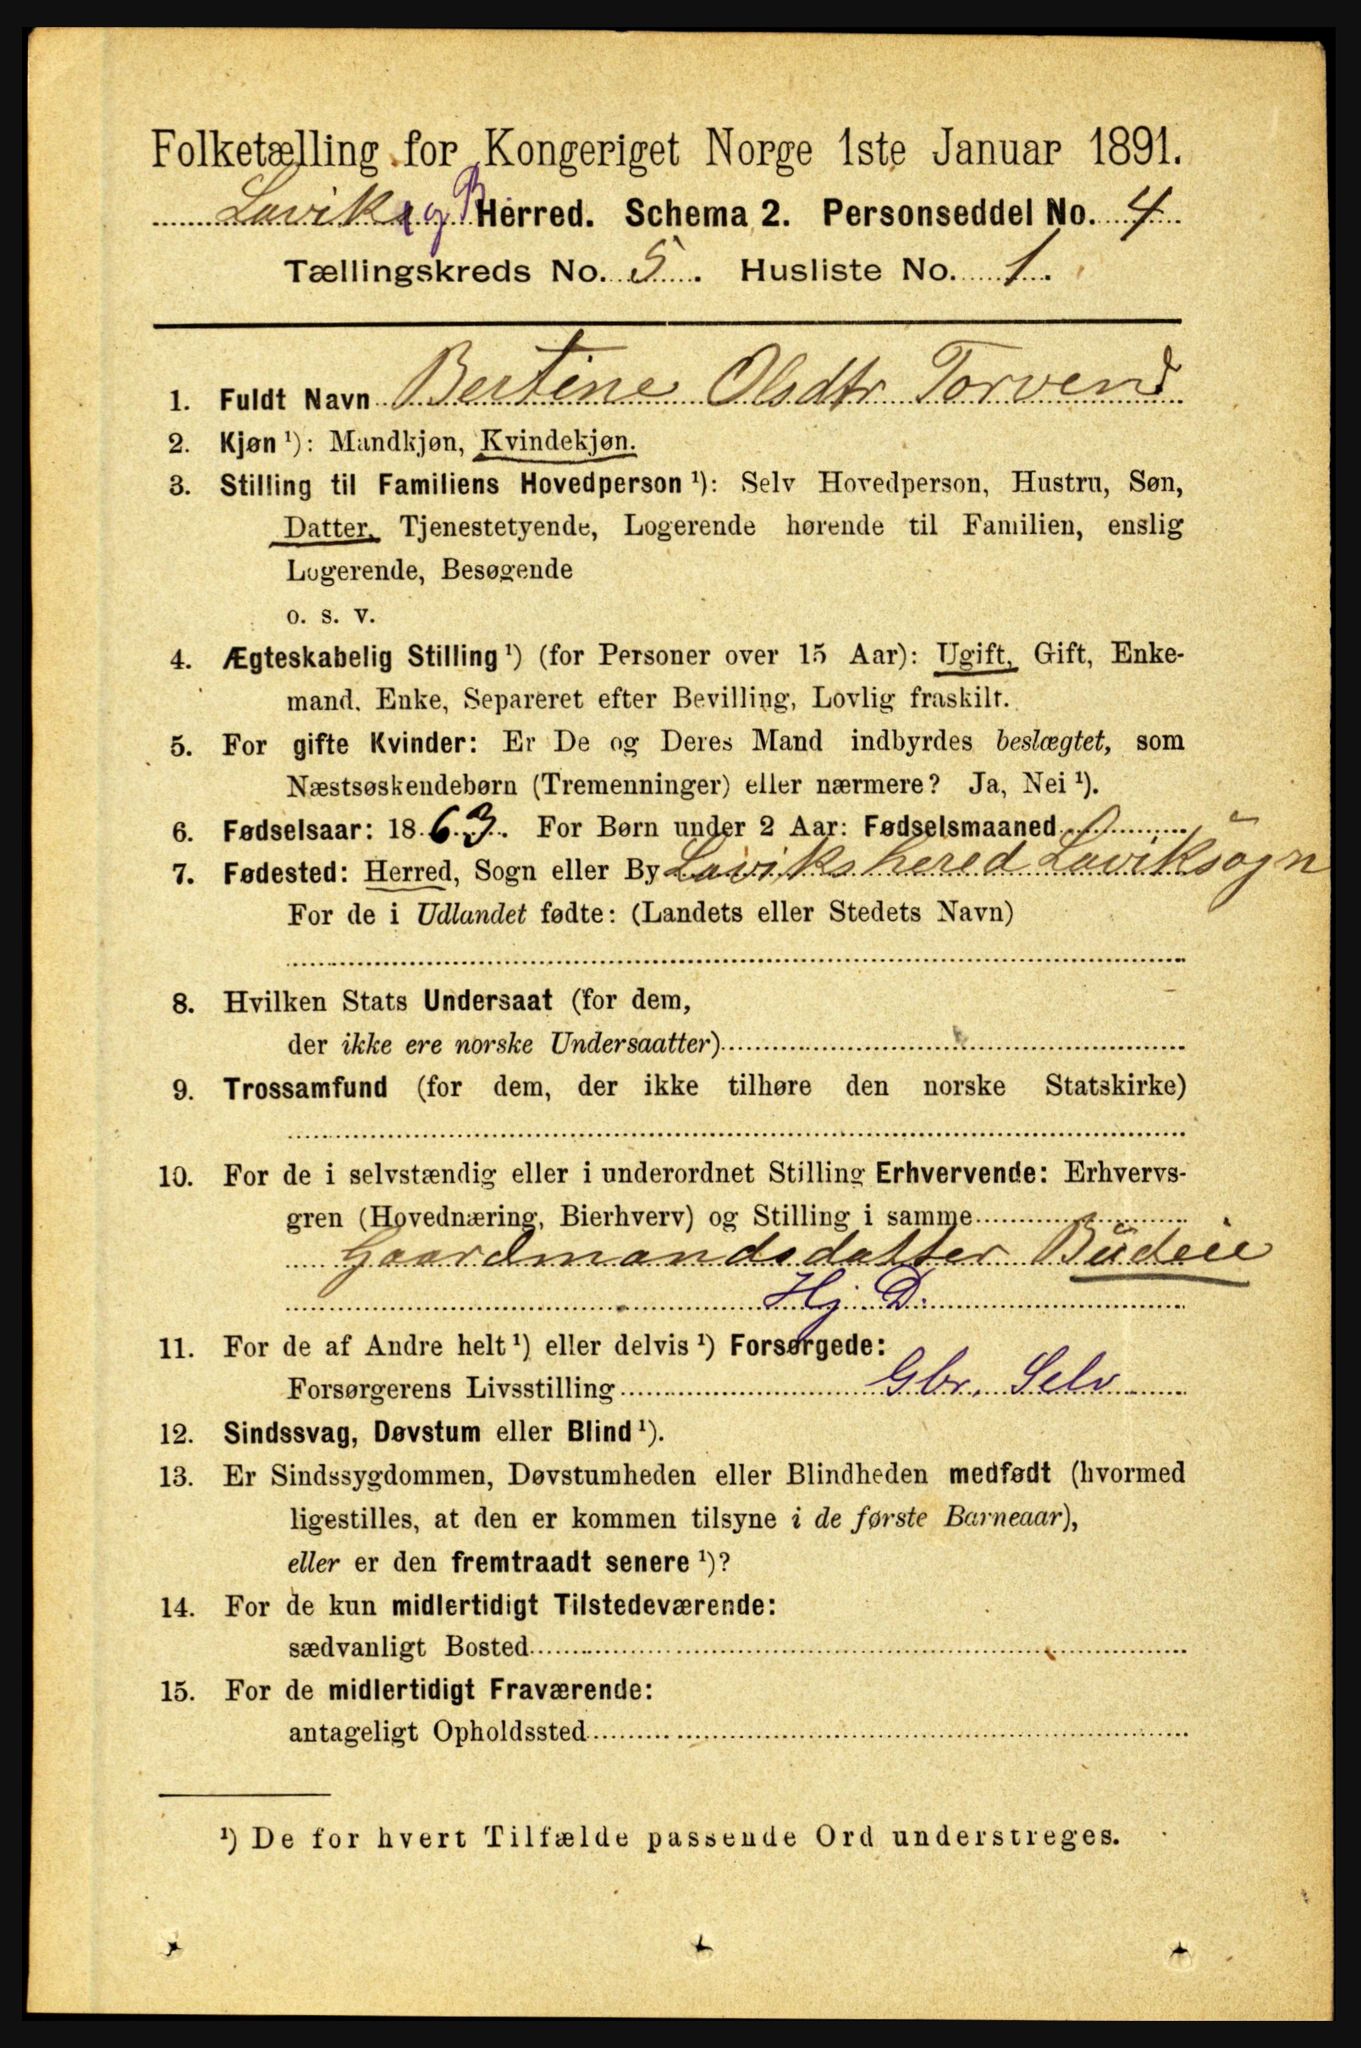 Folketælling for Kongeriget Norge 1ste Januar 1891.
Lavik og B Herred. Schema 2. Personseddel No. 4
Tællingskreds No. 5. Husliste No. 1.
1. Fuldt Navn Bertine Olsdtr Torvend
2. Kjøn ¹): Mandkjøn, Kvindekjøn.
3. Stilling til Familiens Hovedperson ¹): Selv Hovedperson, Hustru, Søn,
Datter, Tjenestetyende, Logerende hørende til Familien, enslig
Logerende, Besøgende
o. s. v.
4. Ægteskabelig Stilling ¹) (for Personer over 15 Aar): Ugift, Gift, Enke-
mand, Enke, Separeret efter Bevilling, Lovlig fraskilt.
5. For gifte Kvinder: Er De og Deres Mand indbyrdes beslægtet, som
Næstsøskendebørn (Tremenninger) eller nærmere? Ja, Nei ¹).
6. Fødselsaar: 1863. For Børn under 2 Aar: Fødselsmaaned
7. Fødested: Herred, Sogn eller By Laviks hered Laviksogn
For de i Udlandet fødte: (Landets eller Stedets Navn)
8. Hvilken Stats Undersaat (for dem,
der ikke ere norske Undersaatter)
9. Trossamfund (for dem, der ikke tilhøre den norske Statskirke)
10. For de i selvstændig eller i underordnet Stilling Erhvervende: Erhvervs-
gren (Hovednæring, Bierhverv) og Stilling i samme
Gaardmandsdatter Budeie
Hj. D.
11. For de af Andre helt ¹) eller delvis ¹) Forsørgede:
Forsørgerens Livsstilling Gbr. Selv
12. Sindssvag, Døvstum eller Blind ¹).
13. Er Sindssygdommen, Døvstumheden eller Blindheden medfødt (hvormed
ligestilles, at den er kommen tilsyne i de første Barneaar),
eller er den fremtraadt senere ¹)?
14. For de kun midlertidigt Tilstedeværende:
sædvanligt Bosted
15. For de midlertidigt Fraværende:
antageligt Opholdssted
¹) De for hvert Tilfælde passende Ord understreges.